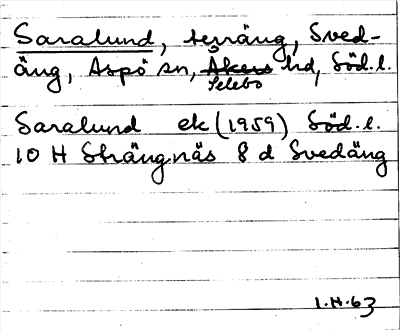 Saralund, terräng, Sved-
äng, Aspö sn, Åkers hd, Söd.l.
Selebo
Saralund ek (1959) Söd.l.
10 H Strängnäs 8 d Svedäng
1.H.63